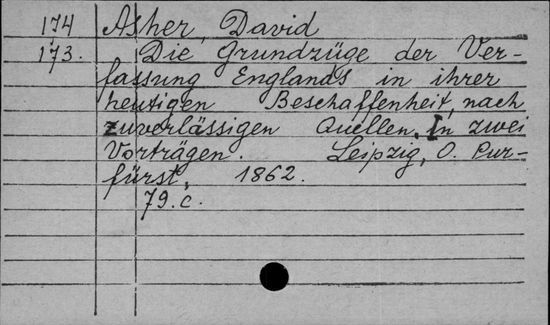 174 Asher, David
173. Die Grundzüge der Ver-
fassung Englands in ihrer
heutigen Beschaffenheit, nach
zuverlässigen Quellen. In zwei
Vorträgen. Leipzig, O. Pur-
fürst, 1862.
79. c.